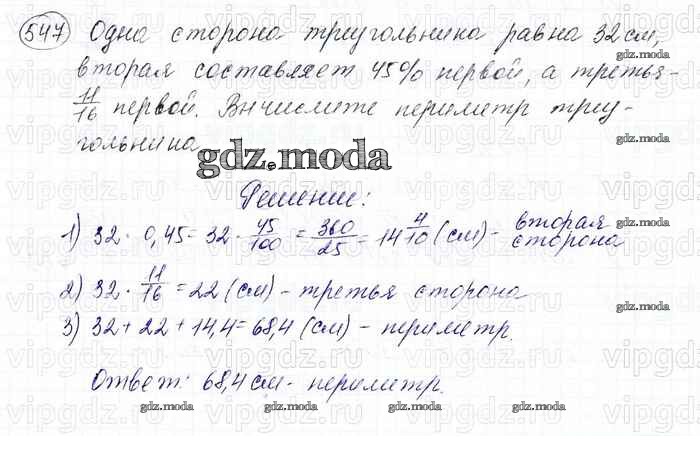 547 Одна сторона треугольника равна 32 см,
вторая составляет 45% первой, а третья -
11/16 первой. Вычислите периметр треу-
гольника.
gdz.moda
Решение:
1) 32 · 0,45 = 32 · 45/100 = 360/25 = 14 4/10 (см) - вторая сторона
2) 32 · 11/16 = 22 (см) - третья сторона
3) 32 + 22 + 14,4 = 68,4 (см) - периметр.
Ответ: 68,4 см - периметр.
gdz.moda
gdz.moda
gdz.moda
gdz.moda
gdz.moda
gdz.moda
vipgdz.ru